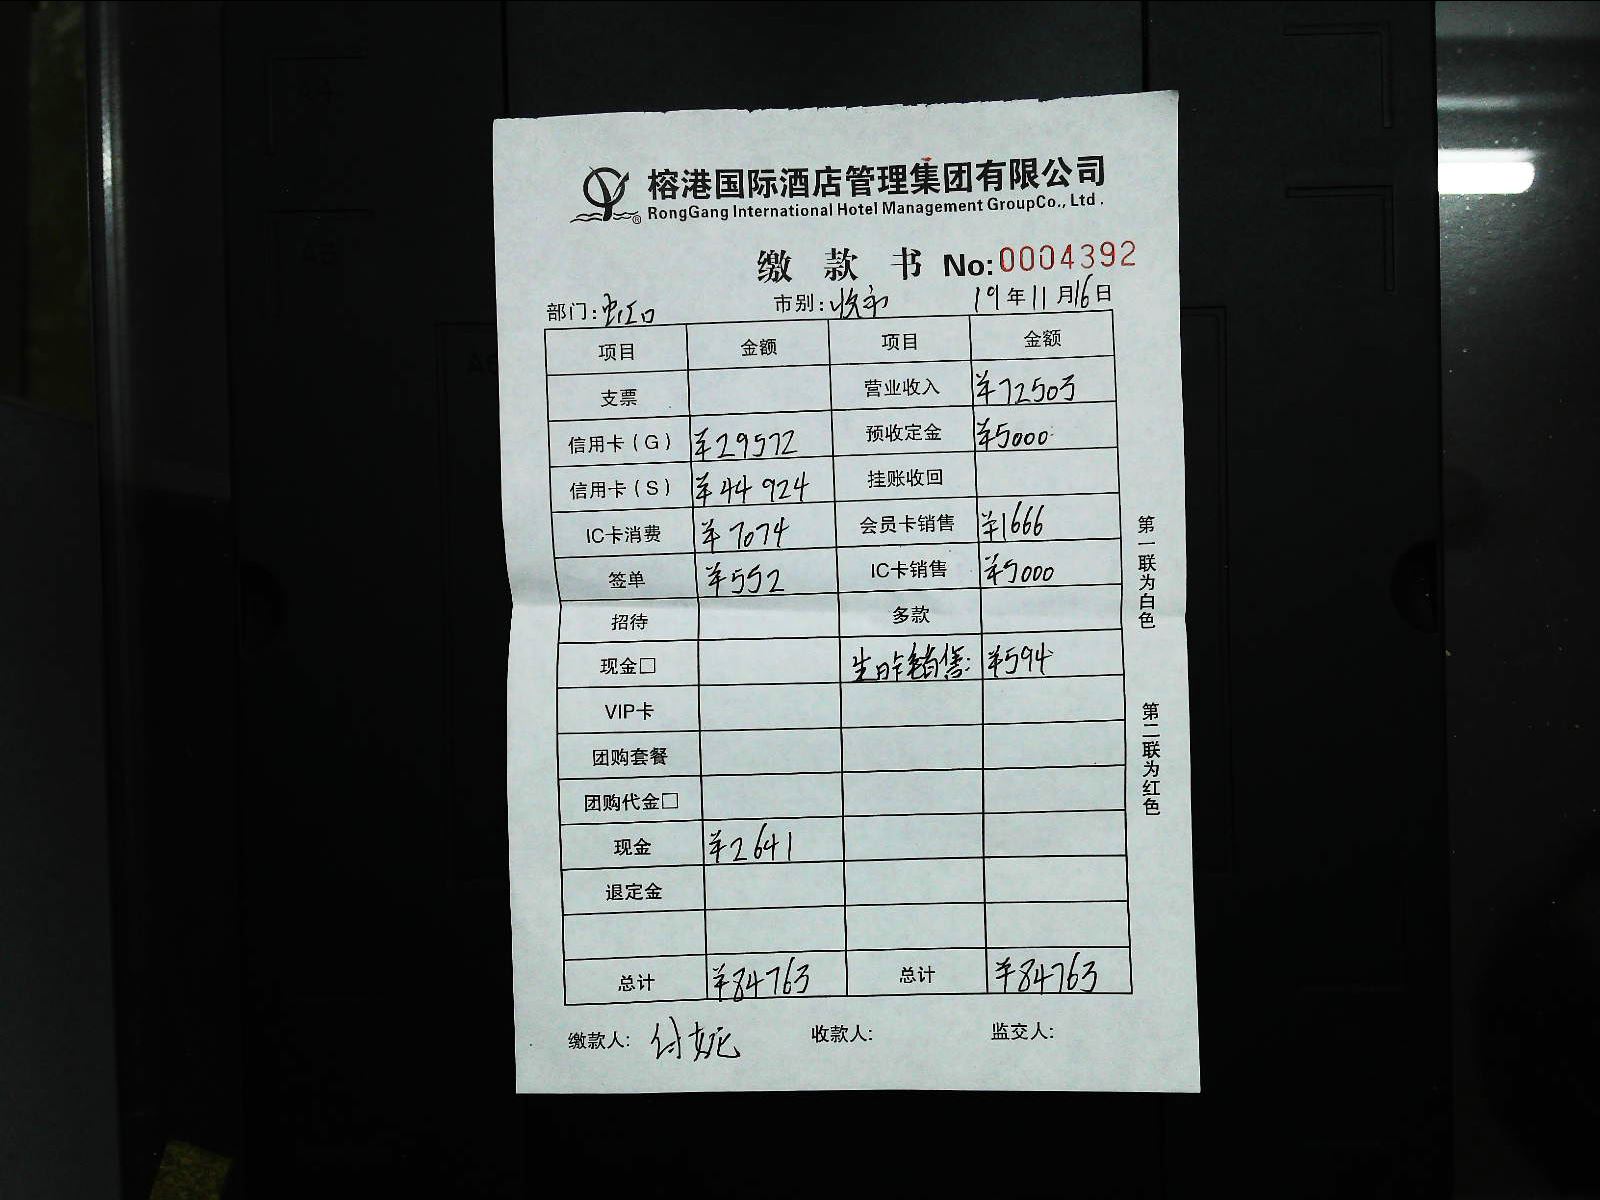 榕港国际酒店管理集团有限公司
RongGang International Hotel Management GroupCo., Ltd .
缴 款 书 No:0004392
部门:虹口 市别:收市 19年11月16日
项目 金额 项目 金额
支票 营业收入 ¥72503
信用卡(G) ¥29572 预收定金 ¥5000
信用卡(S) ¥44924 挂账收回
IC卡消费 ¥7074 会员卡销售 ¥1666
签单 ¥552 IC卡销售 ¥5000
招待 多款
现金□ 生日卡销售: ¥594
VIP卡
团购套餐
团购代金□
现金 ¥2641
退定金
总计 ¥84763 总计 ¥84763
缴款人: 付妮 收款人: 监交人:
第一联为白色
第二联为红色